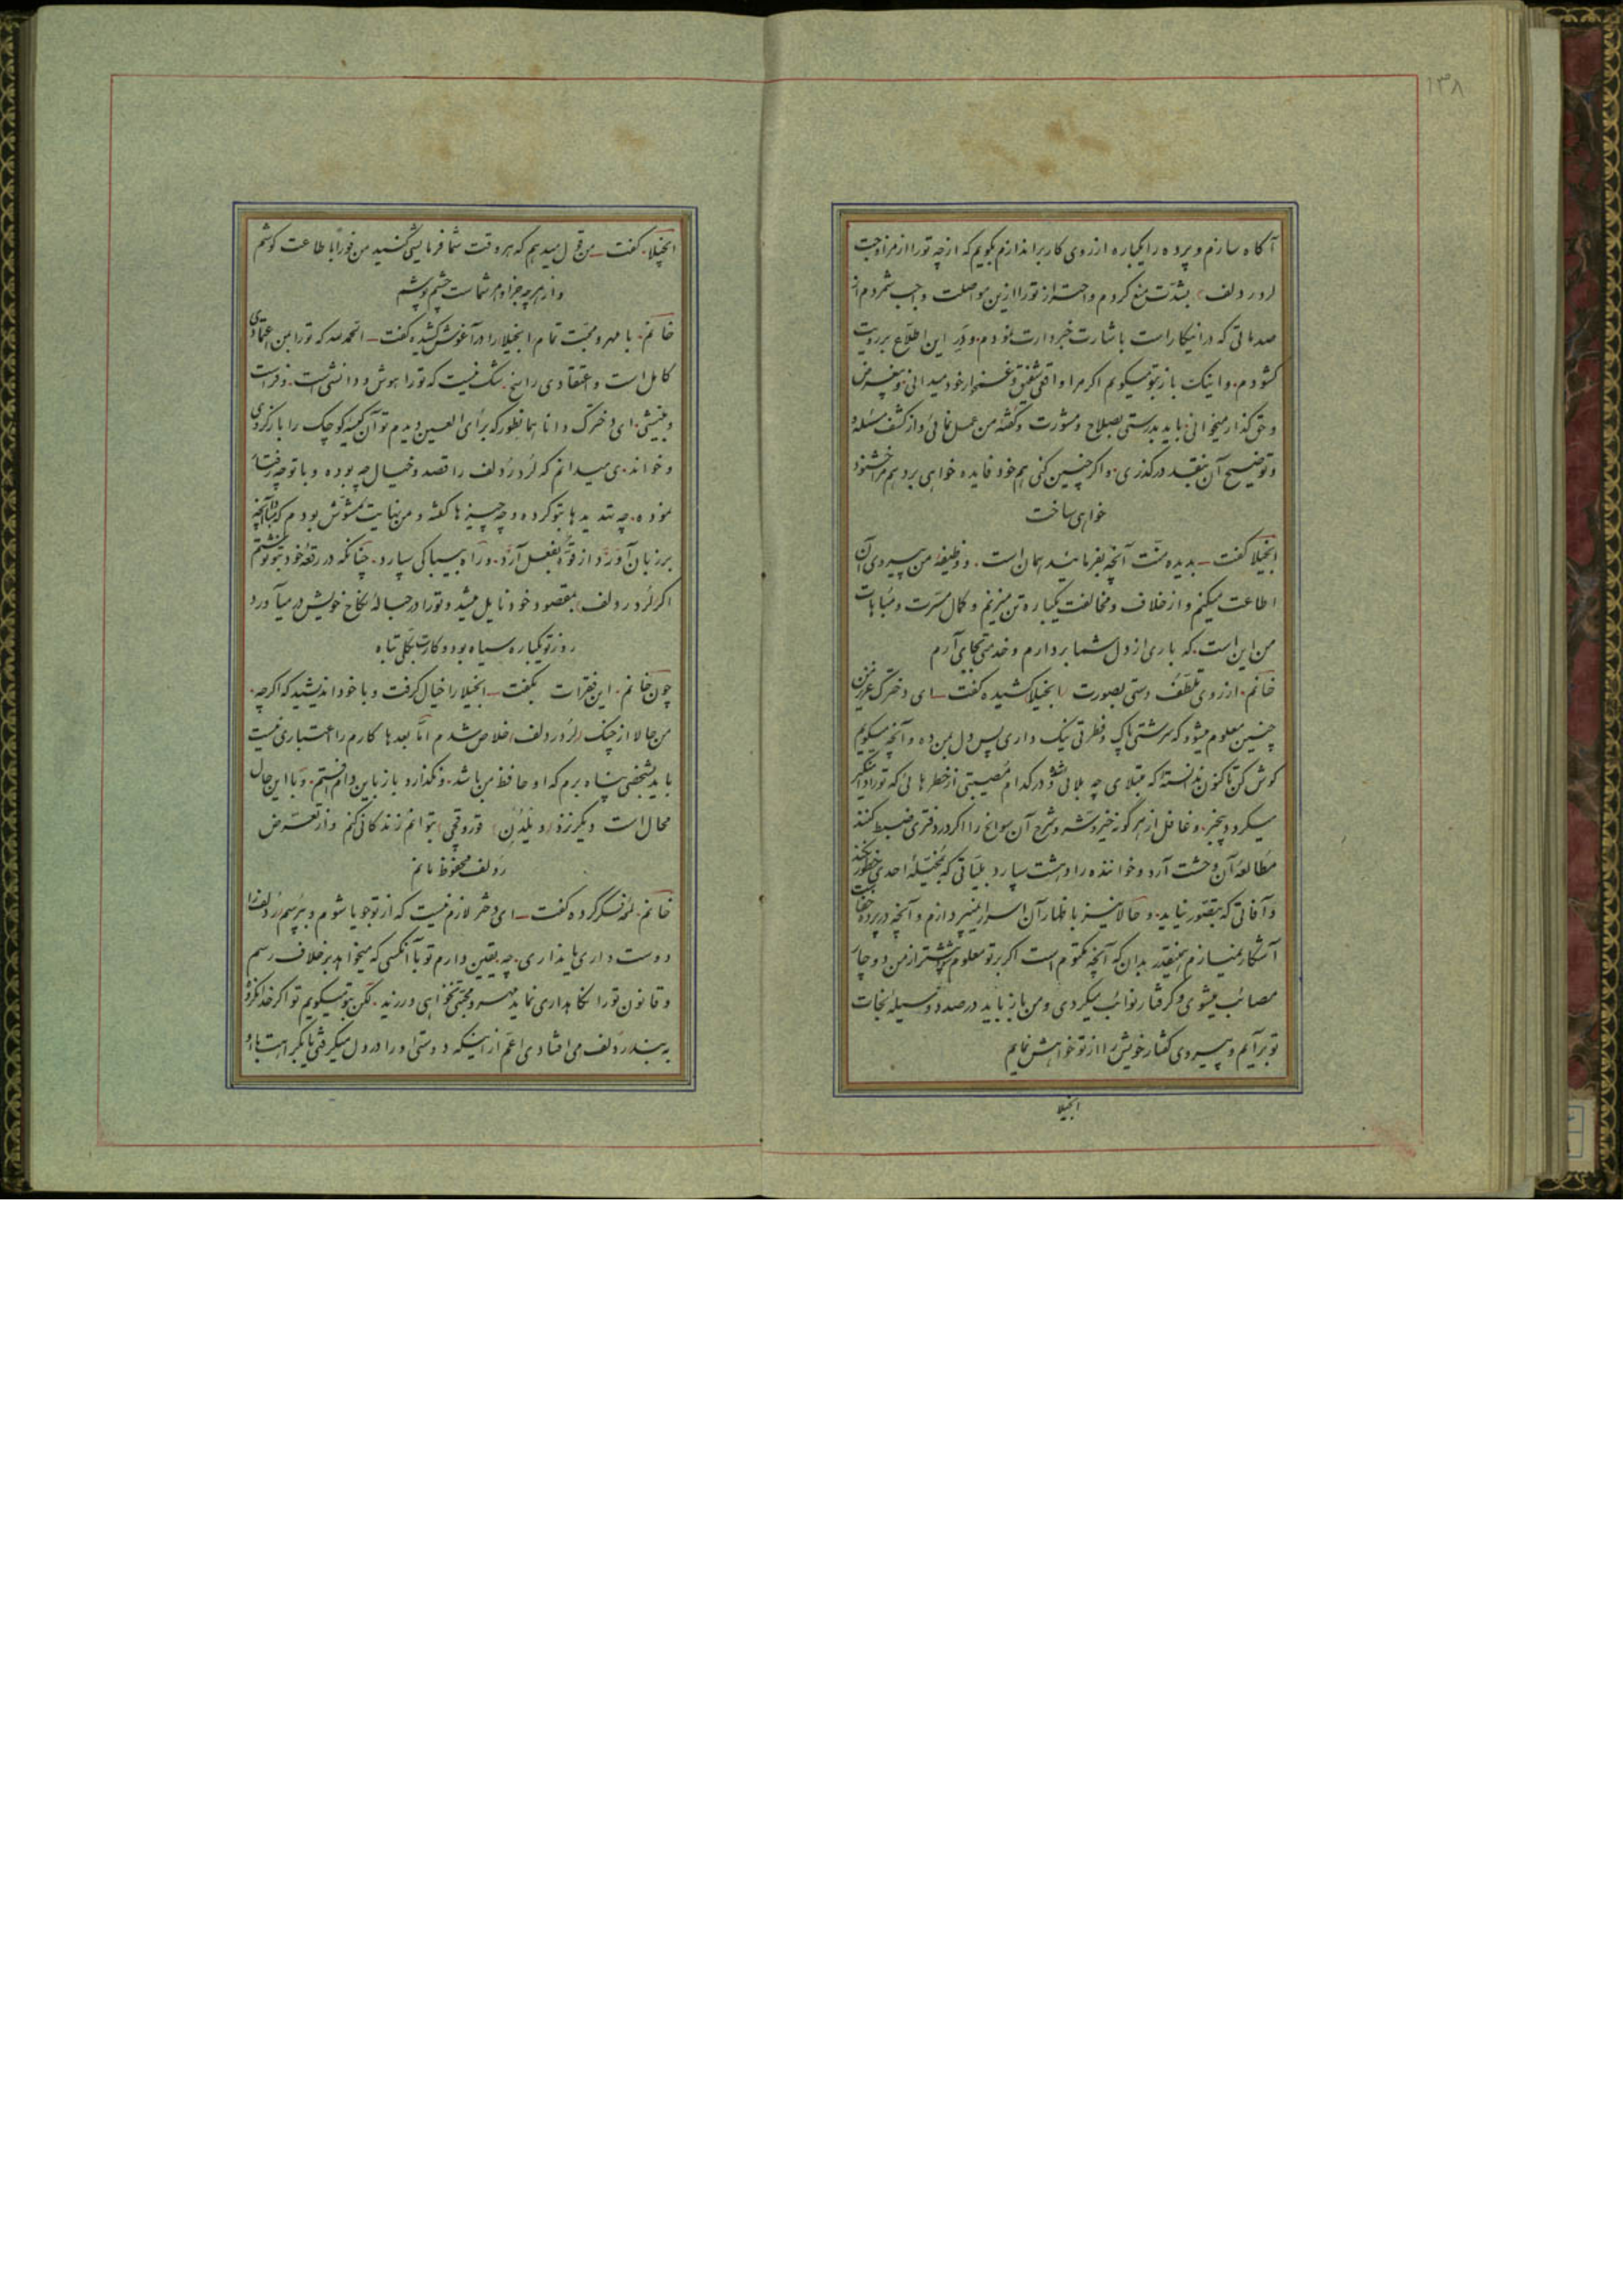 ۱۳۸
آگاه سازم و پرده را یکباره از روی کار براندازم بگویم که از چه تو را از مزاوجت
لرد ردلف بشدّت منع کردم و احتراز تو را ازین مواصلت واجب شمردم از
صدماتی که در اینکار است باشارت خبردارت نمودم و در این اطلاع بر رویت
گشودم و اینک باز بتو میگویم اگر مرا واقعی شفیق و غمخوار خود میدانی و بیغرض
و حق گذار میخوانی باید بدرستی بصلاح و مشورت و گفته من عمل نمائی و از کشف مسئله
و توضیح آن بنقد درگذری و اگر چنین کنی هم خود فایده خواهی برد هم مرا خشنود
خواهی ساخت
انجیلا گفت ـ بدیده منّت آنچه بفرمائید همان است و وظیفهٔ من پیروی آن
اطاعت میکنم و از خلاف و مخالفت یکباره تن میزنم و کمال مسّرت و مباهات
من این است که باری از دل شما بردارم و خدمتی بجای آرم
خانم از روی تلطّف دستی بصورت انجیلا کشیده گفت ـ ای دخترک عزیز من
چنین معلوم میشود که سرشتی پاک و فطرتی نیک داری پس دل بمن ده و آنچه میگویم
گوش کن تاکنون ندانستهٔ که مبتلای چه بلائی شدهٔ و در کدام مصیبتی از خطرهائی که تو را دامنگیر
میگردد بیخبر و غافل از هرگونه خیر و شر و شرح آن سوانح را اگر در دفتری ضبط کنند
مطالعهٔ آن وحشت آرد و خواننده را دهشت سپارد بلیّاتی که بمخیّلهٔ احدی خطور نکند
و آفاتی که بتصّور نیاید و حالا نیز باظهار آن اسرار نمیپردازم و آنچه در پرده خفاست
آشکار نمیسازم همینقدر بدان که آنچه مکتوم است اگر بر تو معلوم شود بیشتر از من دوچار
مصائب میشوی و گرفتار نوائب میگردی و من باز باید در صدد وسیلهٔ نجات
تو برآیم و پیروی گفتار خویش را از تو خواهش نمایم
انجیلا
انجیلا گفت ـ من قول میدهم که هر وقت شما فرمایشی کنید من فوراً باطاعت کوشم
و از هرچه جز اوامر شماست چشم پوشم
خانم با مهر و محبّت تمام انجیلا را در آغوش کشیده گفت ـ الحمدلله که تو را بمن اعتمادی
کامل است و اعتقادی راسخ شک نیست که تو را هوش و دانشی است و فراست
و بینشی ای دخترک دانا همانطور که برأی العین دیدم تو آن کیسه کوچک را باز کردی
و خواندی میدانم که لرد ردلف را قصد و خیال چه بوده و با تو چه رفتار
نموده چه تهدیدها بتو کرده و چه چیزها گفته و من بنهایت مشوّش بودم که مبادا آنچه
بر زبان آورَد از قوّه بفعل آرَد و راه بیباکی سپارد چنانکه در رقعهٔ خود بتو نوشتم
اگر لرد ردلف بمقصود خود نایل میشد و تو را در حبالهٔ نکاح خویش در میآورد
روز تو یکباره سیاه بود و کارت بکلّی تباه
چون خانم این فقرات بگفت ـ انجیلا را خیال گرفت و با خود اندیشید که اگرچه
من حالا از چنگ لرد ردلف خلاص شدم امّا بعدها کارم را اعتباری نیست
باید بشخصی پناه برم که او حافظ من باشد و نگذارد باز باین دام افتم و با این حال
محال است دیگر نزد (ویلدن) قوروقچی بتوانم زندگانی کنم و از تعرّض
ردلف محفوظ مانم
خانم لختی فکر کرده گفت ـ ای دختر لازم نیست که از تو جویا شوم و بپرسم ردلف را
دوست داری یا نداری چه یقین دارم تو با آنکسی که میخواهد بر خلاف رسم
و قانون تو را نگاهداری نماید مهر و محبّتی نخواهی ورزید لکن بتو میگویم تو اگر خدا نکرده
به بند ردلف می افتادی اعم از اینکه دوستی او را در دل میگرفتی یا بکراهت با او